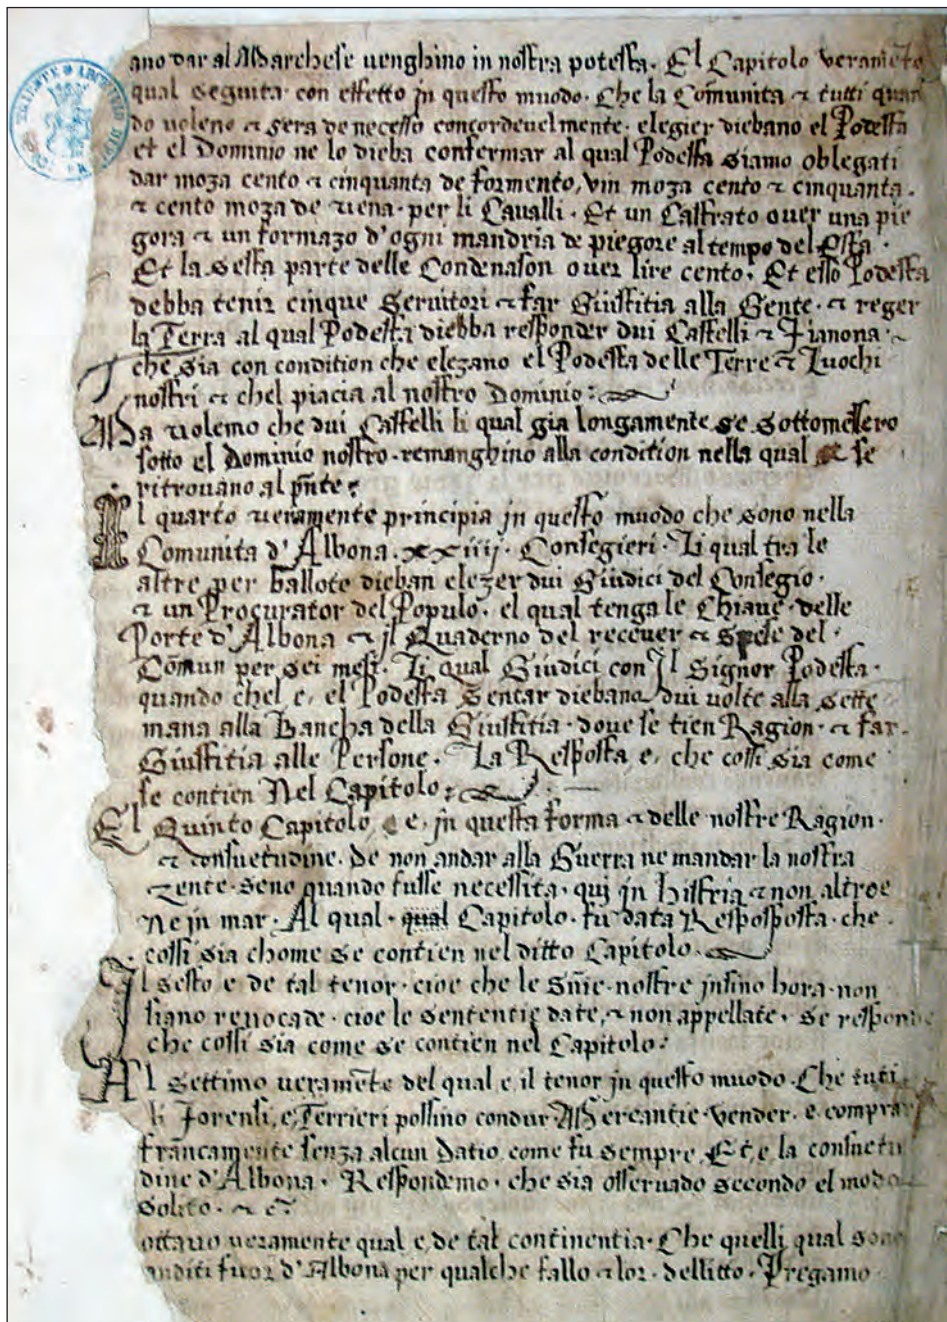 ano dar al Marchese uenghino in nostra potesta. El Capitolo veramēte
qual seguita con effetto jn questo muodo. Che la Comunita & tutti quan
do voleno & sera de necesso concordeuelmente. elegier diebano el Podesta
et el Dominio ne lo dieba confermar al qual Podesta siamo oblegati
dar moza cento & cinquanta de formento, vin moza cento & cinquanta.
& cento moza de viena. per li Caualli. Et un Castrato ouer una pie
gora & un formazo d'ogni mandria de piegore al tempo del Està.
Et la sesta parte delle Condenason ouer lire cento. Et esso Podesta
debba tenir cinque Seruitori & far Giustitia alla Gente. & reger
la Terra al qual Podesta diebba responder dui Castelli & Fianona.
che sia con condition che elezano el Podesta delle Terre & Luochi
nostri & chel piacia al nostro Dominio:
Ma volemo che dui Castelli li qual gia longamente se sottomessero
sotto el Dominio nostro. remanghino alla condition nella qual se
ritrouano al pn̄te:
Il quarto veramente principia jn questo muodo che sono nella
Comunita d'Albona. xxiiij. Consegieri. Li qual tra le
altre per ballote dieban elezer dui Giudici del Consegio.
& un Procurator del Populo. el qual tenga le Chiaue. delle
Porte d'Albona & jl Quaderno del receuer & spese del.
Com̄un per sei mesi. Li qual Giudici con Jl Signor Podesta.
quando chel e, el Podesta Sentar diebano dui volte alla sette
mana alla Bancha della Giustitia. doue se tien Ragion. & far.
Giustitia alle Persone. La Resposta e, che cossi sia come
se contien Nel Capitolo:
El Quinto Capitolo e, jn questa forma & delle nostre Ragion.
& consuetudine. De non andar alla Guerra ne mandar la nostra
zente. seno quando fusse necessita. qui jn histria & non altroe
Ne jn mar. Al qual. qual Capitolo. fu data Resposposta. che.
cossi sia chome se contien nel ditto Capitolo.
Jl sesto e de tal tenor. cioe che le Sn̄ie. nostre jnsino hora. non
siano reuocade. cioe le sententie date, & non appellate. se responde
che cossi sia come se contien nel Capitolo:
Al settimo ueramēte del qual e il tenor jn questo muodo. Che tuti
li Forensi, e, Terrieri possino condur Mercantie. vender. e comprar
francamente senza alcun Datio come fu sempre. Et, e la consuetu
dine d'Albona. Respondemo. che sia osseruado secondo el modo
Solito. & c̄
ottauo ueramente qual e, de tal continentia. Che quelli qual sono
anditi fuor d'Albona per qualche fallo & lor. dellitto. Pregamo